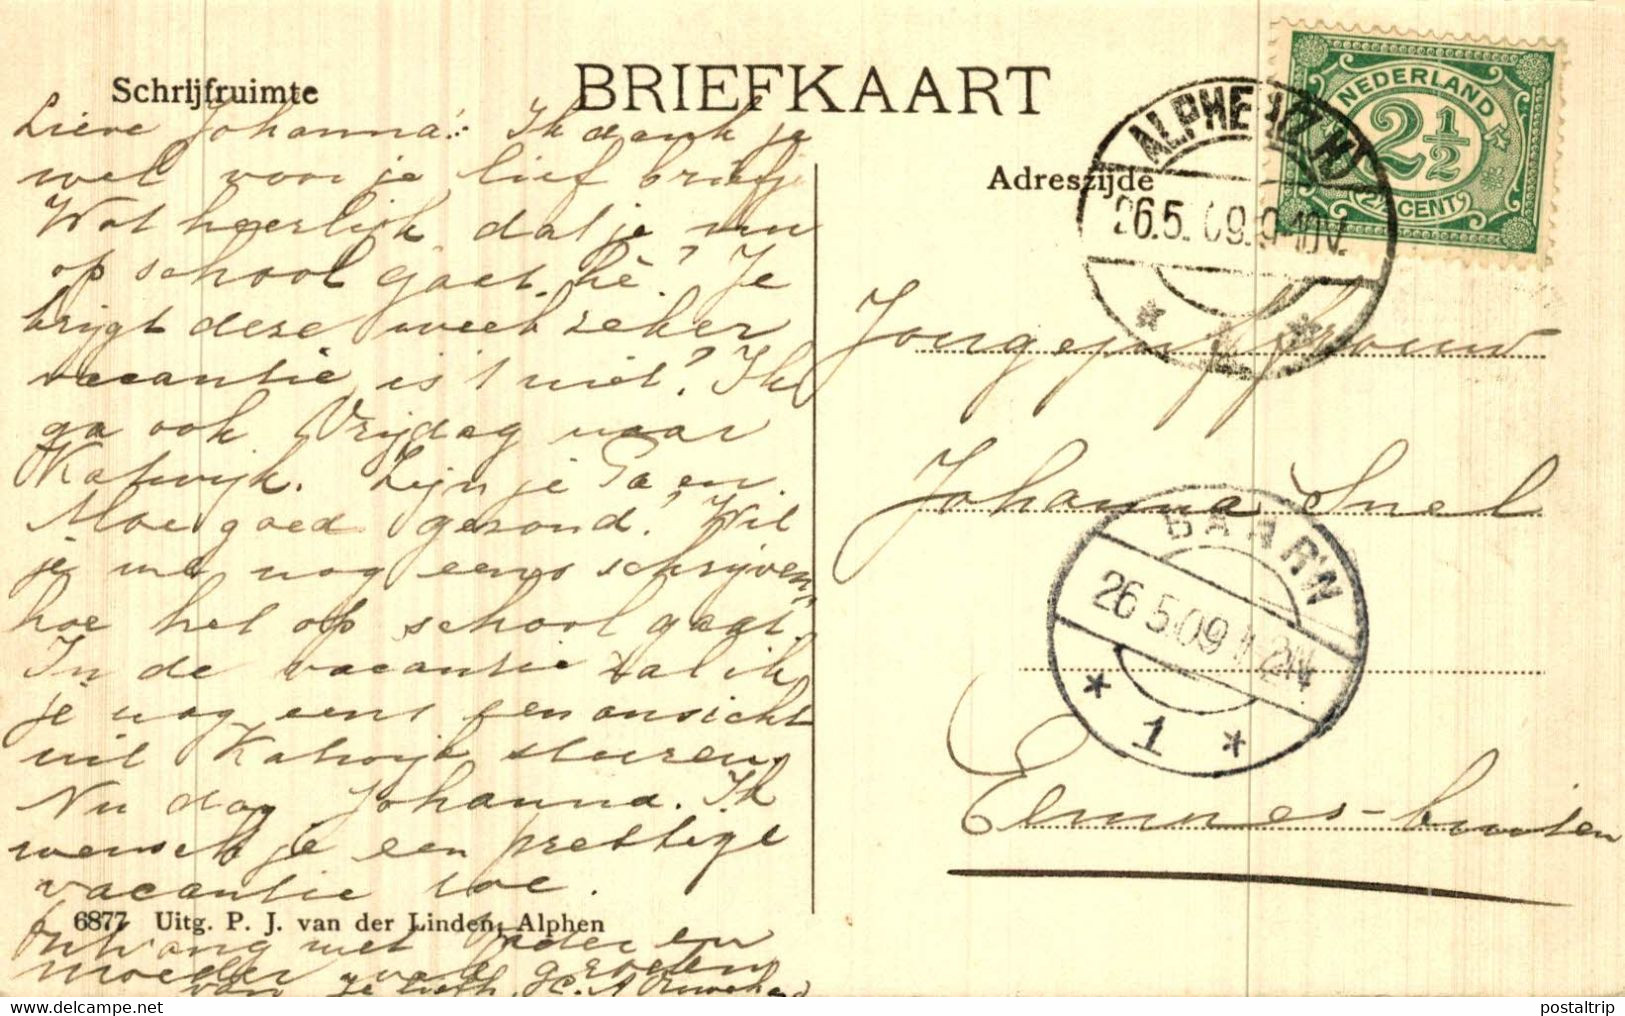 Schrijfruimte
BRIEFKAART
Adreszijde
NEDERLAND
2½
2½ CENT
ALPHEN (Z.H)
26.5.09.9-10V.
1
Lieve Johanna! Ik dank je
wel voor je lief briefje
Wat heerlijk dat je nu
op school gaat, hè? Je
krijgt deze week zeker
vacantie is 't niet? Ik
ga ook Vrijdag naar
Katwijk. Zijn je Pa en
Moe goed gezond? Wil
je me nog eens schrijven,
hoe het op school gaat.
In de vacantie zal ik
je nog eens een ansicht
uit Katwijk sturen.
Nu dag Johanna. Ik
wensch je een prettige
vacantie toe.
6877 Uitg. P. J. van der Linden, Alphen
Ontvang met Vader en
Moeder vele groeten
van je liefh.
Jongejuffrouw
Johanna Snel
BAARN
26.5.09 1-2N
1
Eemnes-buiten
www.delcampe.net
postaltrip